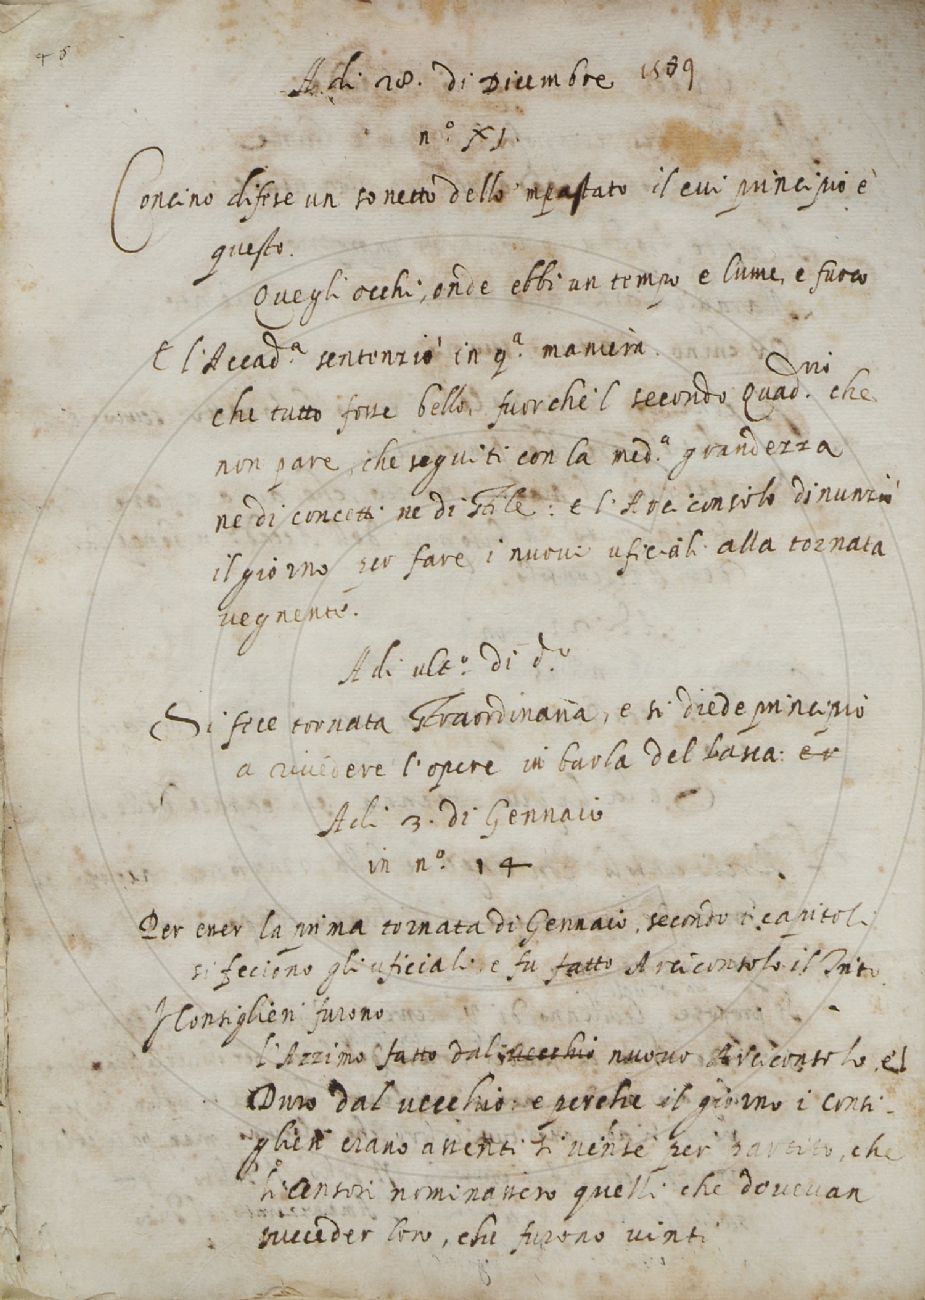 46
A di 28. di Dicembre 1589
n.º XI.
Concino difese un sonetto dello 'mpastato il cui principio è
questo.
Quegli occhi, onde ebbi un tempo e lume, e fuoco
E l'Accad.ª sentenziò in q.ª maniera.
che tutto fosse bello, fuorche 'l secondo Quad.rio che
non pare, che seguiti con la med.ª grandezza
ne di concetti ne di stile: e l'Arciconsolo dinunziò
il giorno per fare i nuovi uficiali alla tornata
vegnente.
A di ult.º di d.º
Si fece tornata straordinaria, e si diede principio
a rivedere l'opere in burla del Lasca:
A di 3. di Gennaio
in n.º 14
Per esser la prima tornata di Gennaio, secondo i capitoli
si feciono gli uficiali, e fu fatto Arciconsolo il Trito
I Consiglieri furono
l'Azzimo fatto dal vecchio nuovo Arciconsolo, e 'l
Duro dal vecchio: e perche il giorno i consi-
glieri erano assenti si vinse per partito, che
li Censori nominassero quelli che dovevan
succeder loro, che furono vinti